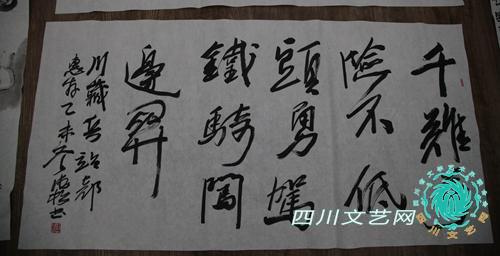 千難
險不低
頭勇駕
鐵騎闖
邊關
川藏兵站部
惠存乙未冬書
四川文艺网